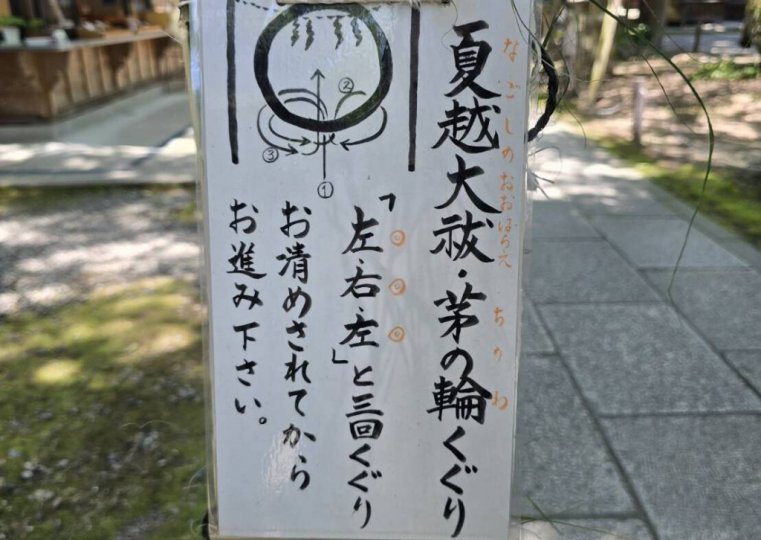 夏越大祓・茅の輪くぐり
なごしのおおはらえ
ちのわ
「左・右・左」と三回くぐり
お清めされてから
お進み下さい。
①
②
③